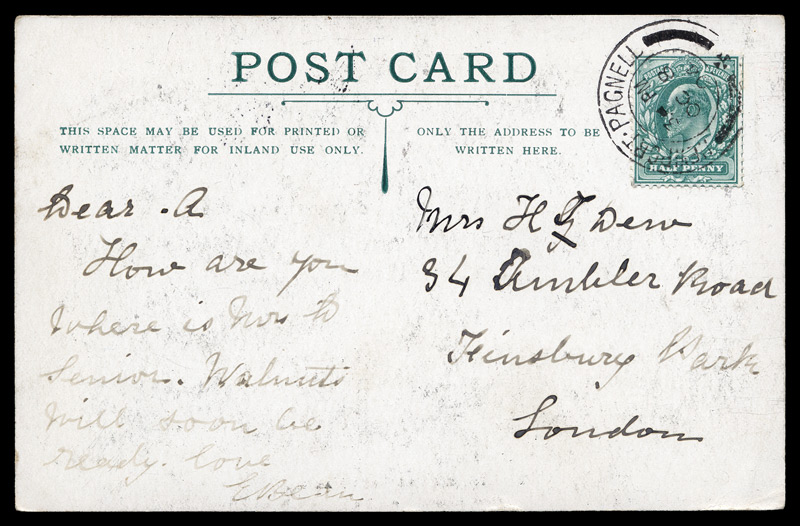 POST CARD
THIS SPACE MAY BE USED FOR PRINTED OR
WRITTEN MATTER FOR INLAND USE ONLY.
ONLY THE ADDRESS TO BE
WRITTEN HERE.
PAGNELL
HALF PENNY
Dear .A
How are you
Where is Mrs D
Senior. Walnuts
will soon be
ready. love
EBean
Mrs H G Dew
34 Ambler Road
Finsbury Park
London